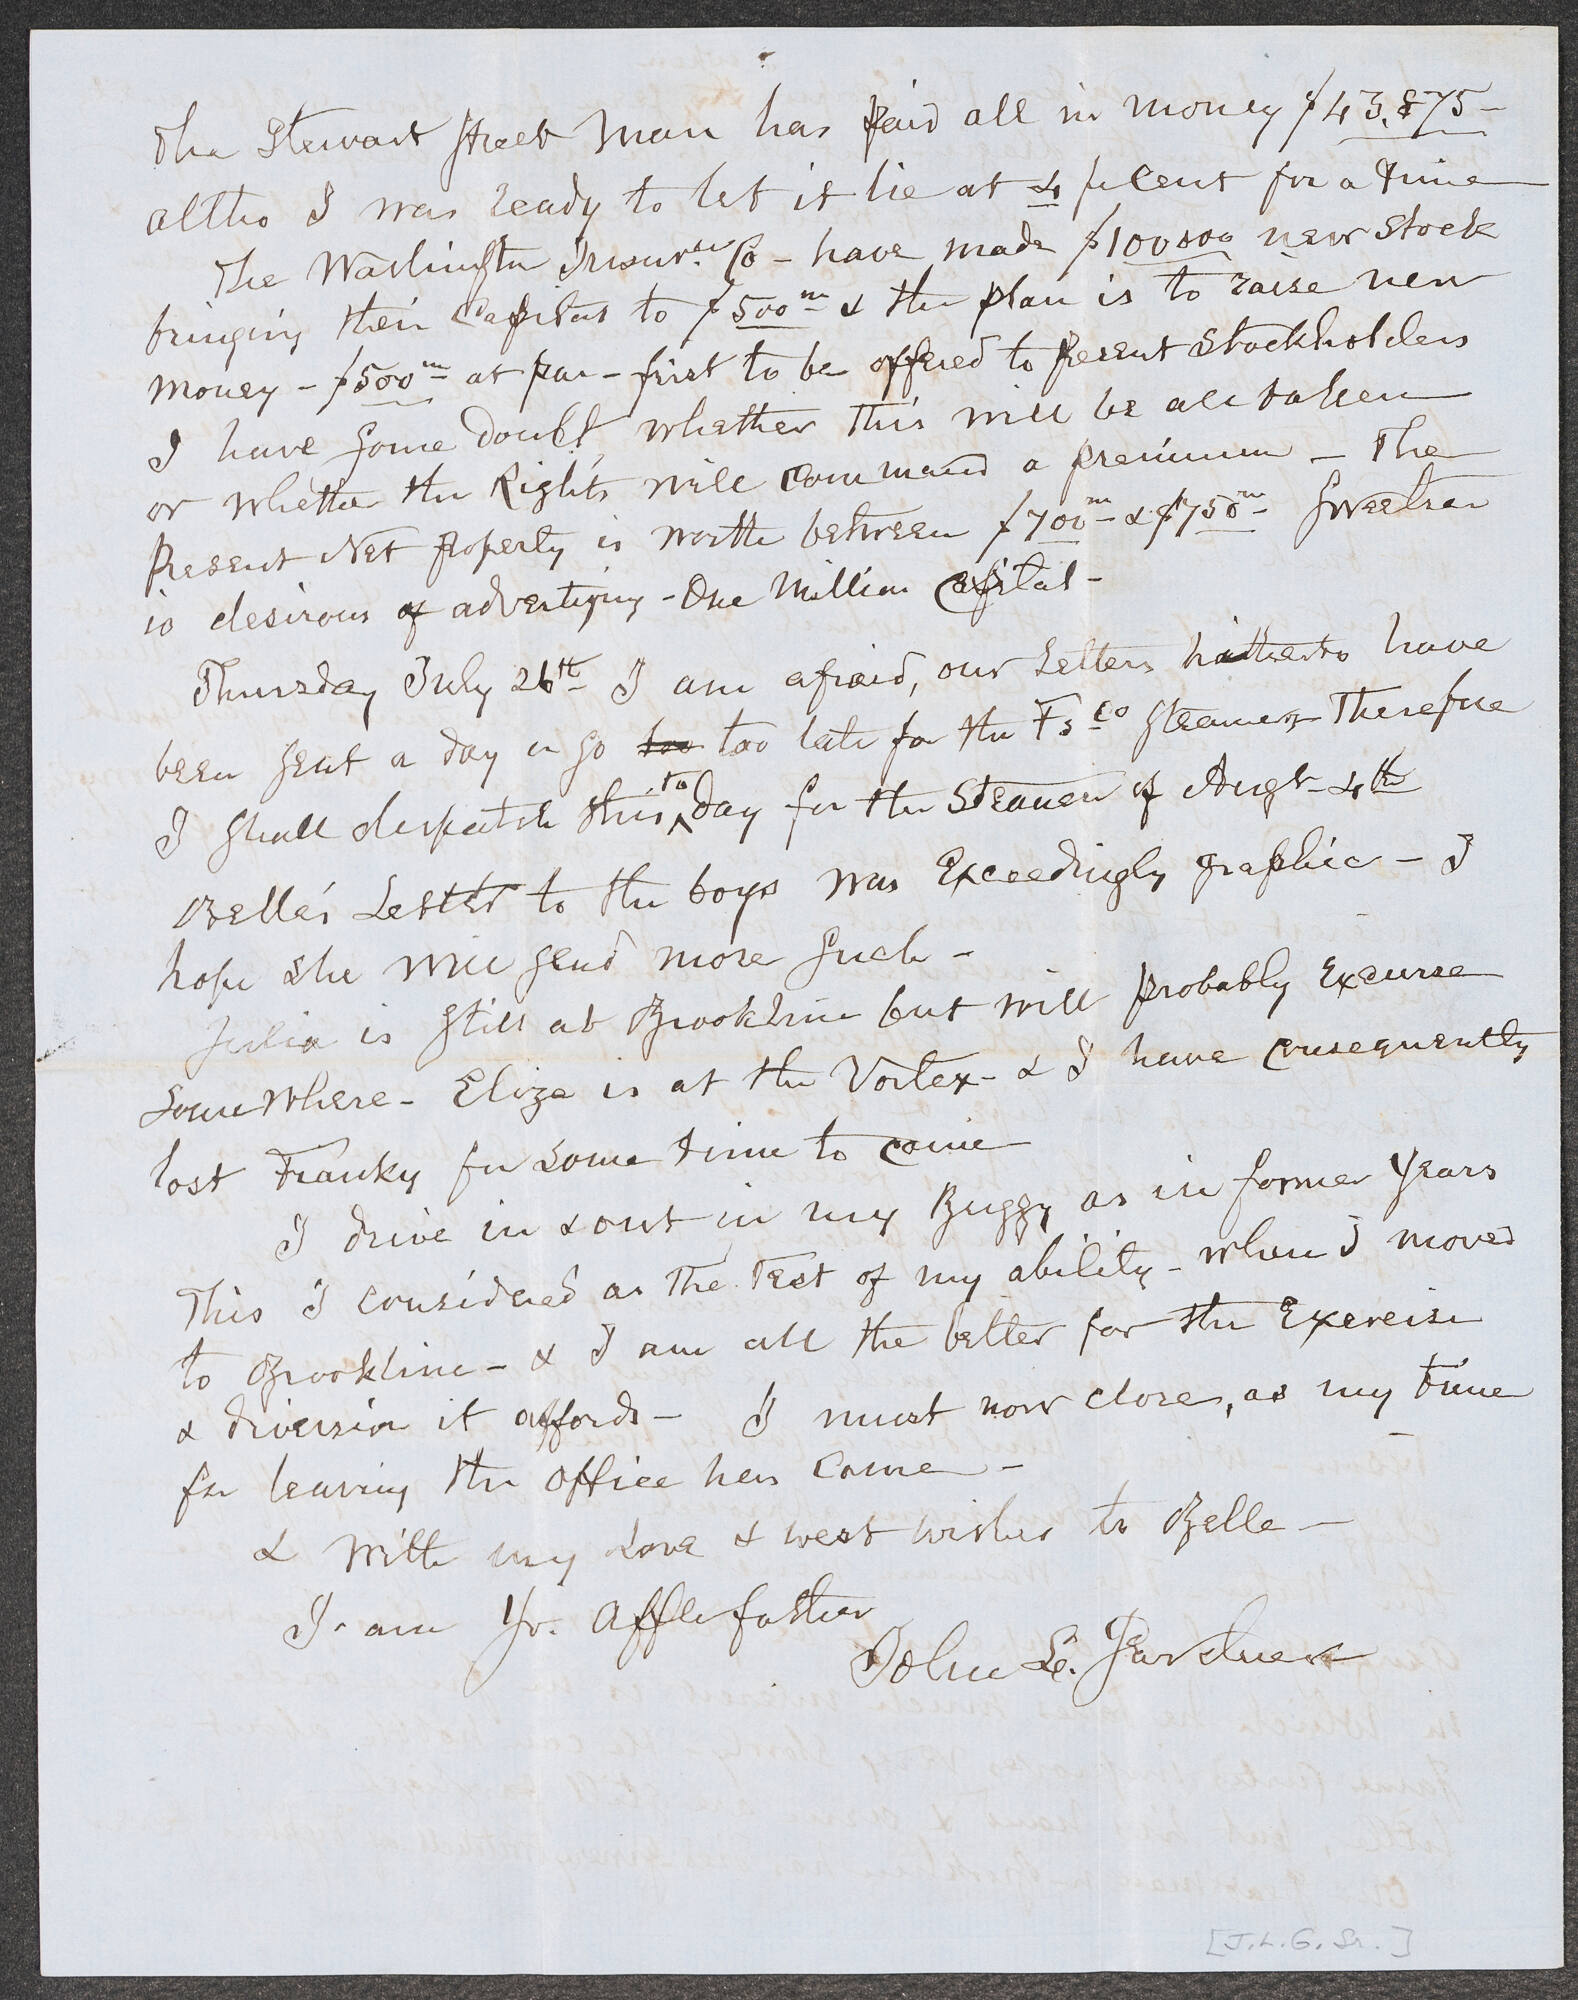 The Stewart Street Man has paid all in money $43,875-
altho I was ready to let it lie at 4 p Cent for a time
The Washington Insurce Co - have made $100000 new Stock
bringing their Capital to $500m & the plan is to raise new
money - $500m at par - first to be offered to present Stockholders
I have some doubt, whether this will be all taken
or whether the Rights will command a premium - The
Present Net property is worth between $700m & $750m Sweetser
is desirous of advertizing - One Million Capital -
Thursday July 26th I am afraid, our Letters hitherto have
been sent a day or so too too late for the Fs Co Steamer Therefore
I shall despatch this to day for the Steamer of Augt 4th
Belle's Letter to the boys was Exceedingly graphic - I
hope she will send more such -
Julia is still at Brookline but will probably Excurse
Somewhere - Eliza is at the Vortex - & I have consequently
lost Franky for some time to come
I drive in & out in my Buggy as in former Years
This I considered as the Test of my ability - when I moved
to Brookline - & I am all the better for the Exercise
& diversion it affords - I must now close, as my time
for leaving the office has Come -
& with my Love & west wishes to Belle -
I am Yr. Affte father
John L. Gardner
[J.L.G. Sr.]